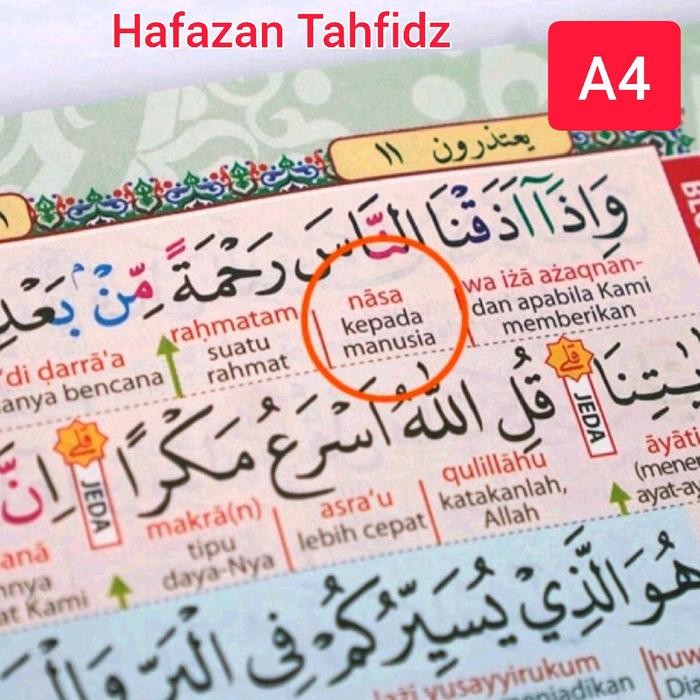 Hafazan Tahfidz
A4
يعتذرون ١١
وَاِذَآ اَذَقْنَا النَّاسَ رَحْمَةً مِّنْۢ بَعْدِ
wa iżā ażaqnan-
dan apabila Kami
memberikan
nāsa
kepada
manusia
raḥmatam
suatu
rahmat
'di ḍarrā'a
anya bencana
قُلِ اللّٰهُ اَسْرَعُ مَكْرًا ۗ اِنَّ
قلى
JEDA
āyāti
ayat-ay
qulillāhu
katakanlah,
Allah
asra'u
lebih cepat
makrā(n)
tipu
daya-Nya
قلى
JEDA
anā
nnya
at Kami
هُوَ الَّذِيْ يُسَيِّرُكُمْ فِى الْبَرِّ
yusayyirukum